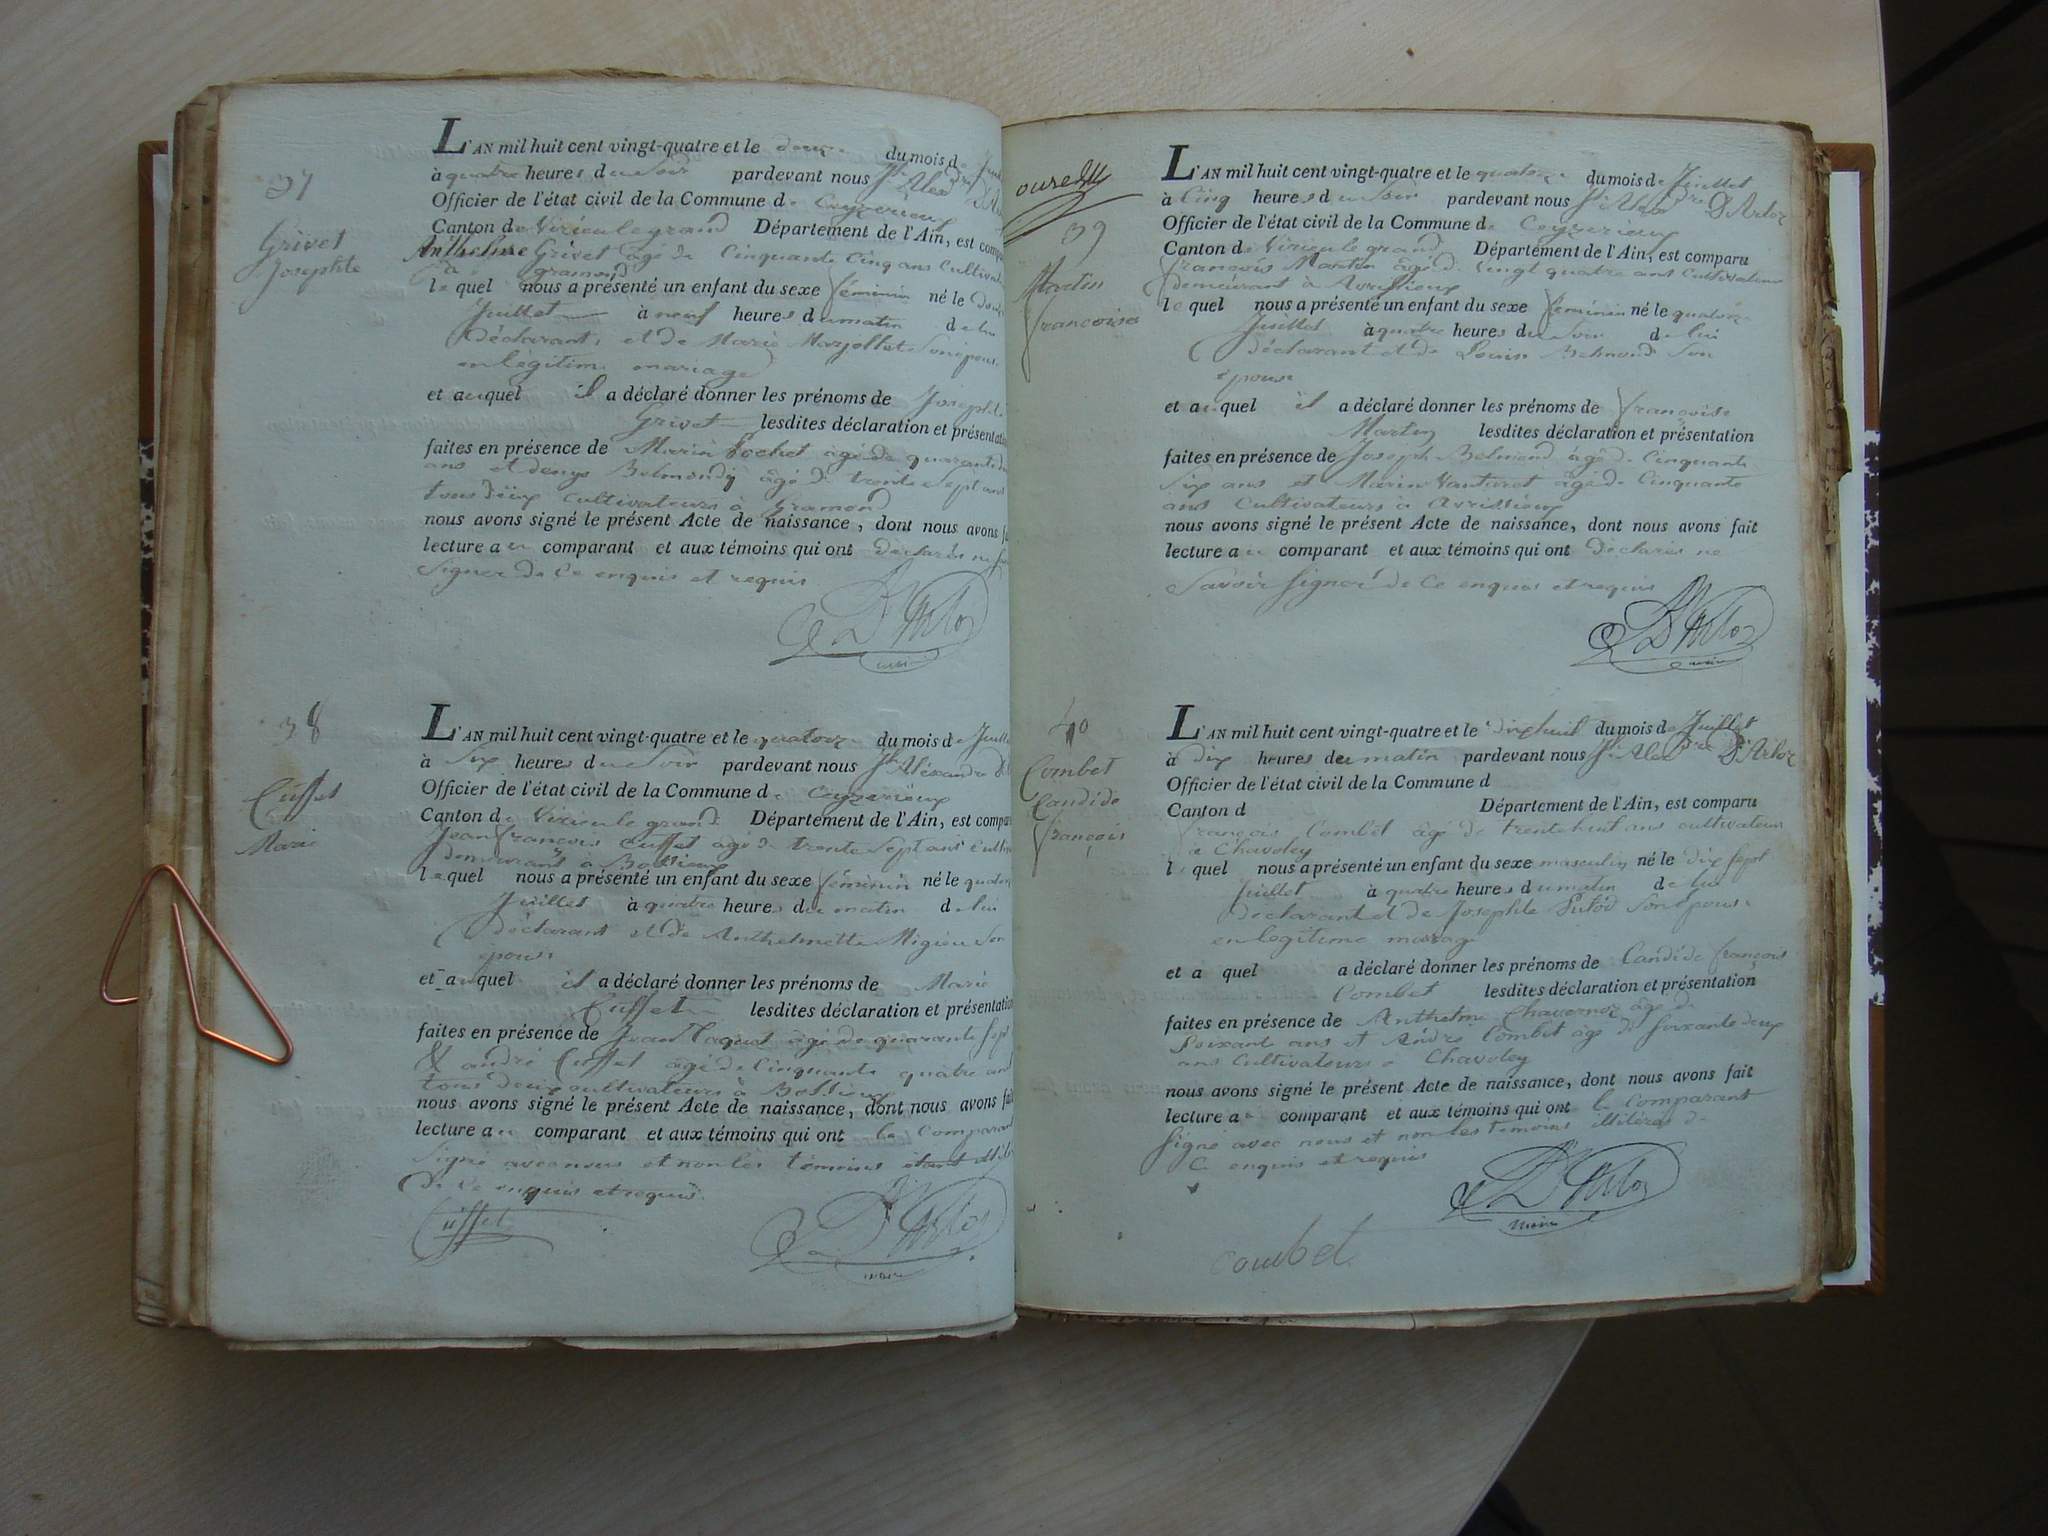 37
Grivet
Josephte
L'AN mil huit cent vingt-quatre et le douze du mois de
à quatre heures du soir pardevant nous Jh Alexdre
Officier de l'état civil de la Commune de Ceyzerieux
Canton de Virieulegrand Département de l'Ain, est comparu
Anthelme Grivet âgé de Cinquante Cinq ans Cultivateur
à gramond
lequel nous a présenté un enfant du sexe féminin né le douze
Juillet à neuf heures du matin de lui
Déclarant et de Marie Marjollet Son épouse
en légitime mariage
et auquel il a déclaré donner les prénoms de Josephte
Grivet lesdites déclaration et présentation
faites en présence de Marin Rochet âgé de quarante
ans et denys Belmondy âgé de trente Sept ans
tous deux cultivateurs à Gramond
nous avons signé le présent Acte de naissance, dont nous avons fait
lecture au comparant et aux témoins qui ont déclarés ne
Signer de Ce enquis et requis
D'Arloz
maire
38
Cuffet
Marie
L'AN mil huit cent vingt-quatre et le quatorze du mois de Juillet
à Six heures du Soir pardevant nous Jh Alexandre
Officier de l'état civil de la Commune de Ceyzerieux
Canton de Virieulegrand Département de l'Ain, est comparu
Jean françois Cuffet âgé de trente Sept ans
demeurant à Bossieux
lequel nous a présenté un enfant du sexe féminin né le quatorze
Juillet à quatre heures du matin de lui
Déclarant et de Anthelmette Migieu Son
épouse
et auquel il a déclaré donner les prénoms de Marie
Cuffet lesdites déclaration et présentation
faites en présence de Jean Taquet âgé de quarante Sept
& andré Cuffet âgé de Cinquante quatre ans
tous deux cultivateurs à
nous avons signé le présent Acte de naissance, dont nous avons fait
lecture au comparant et aux témoins qui ont le Comparant
Signé avec nous et non les témoins étant
de Ce enquis et requis.
Cuffet
D'Arloz
maire
39
Martin
francoise
L'AN mil huit cent vingt-quatre et le quatorze du mois de Juillet
à Cinq heures du Soir pardevant nous Jh Alexdre D'Arloz
Officier de l'état civil de la Commune de Ceyzerieux
Canton de Virieulegrand Département de l'Ain, est comparu
françois Martin âgé de vingt quatre ans Cultivateur
demeurant à Avrissieux
lequel nous a présenté un enfant du sexe féminin né le quatorze
Juillet à quatre heures du Soir de lui
déclarant et de Louise Belmond Son
épouse
et auquel il a déclaré donner les prénoms de françoise
Martin lesdites déclaration et présentation
faites en présence de Joseph Belmond âgé de Cinquante
Six ans et Marin Vanturet âgé de Cinquante
ans Cultivateurs à Avrissieux
nous avons signé le présent Acte de naissance, dont nous avons fait
lecture au comparant et aux témoins qui ont déclarés ne
Savoir Signer de Ce enquis et requis
D'Arloz
maire
40
Combet
Candide
françois
L'AN mil huit cent vingt-quatre et le dixhuit du mois de Juillet
à dix heures du matin pardevant nous Jh Alexdre D'Arloz
Officier de l'état civil de la Commune d
Canton d Département de l'Ain, est comparu
françois Combet âgé de trentehuit ans cultivateur
à Chavoley
lequel nous a présenté un enfant du sexe masculin né le dix Sept
Juillet à quatre heures du matin de lui
déclarant et de Josephte Putod Son épouse
en legitime mariage
et a quel a déclaré donner les prénoms de Candide françois
Combet lesdites déclaration et présentation
faites en présence de Anthelme Chavernoz âgé de
Soixant ans et André Combet âgé de Soixante deux
ans Cultivateurs à Chavoley
nous avons signé le présent Acte de naissance, dont nous avons fait
lecture au comparant et aux témoins qui ont le Comparant
Signé avec nous et non les témoins illitérés de
Ce enquis et requis
D'Arloz
maire
combet